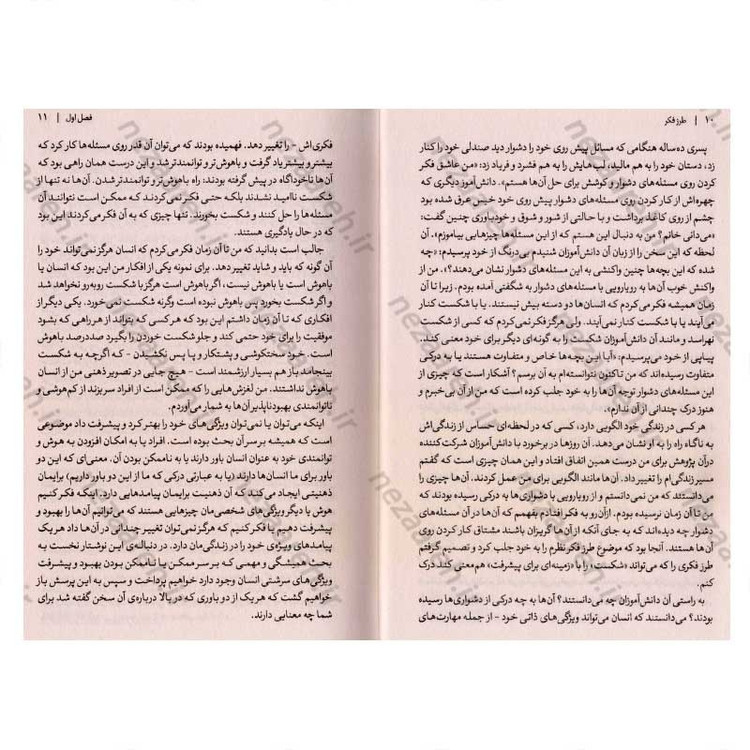 ۱۰ | طرز فکر
پسری ده‌ساله هنگامی که مسائل پیش روی خود را دشوار دید صندلی خود را کنار
زد، دستان خود را به هم مالید، لب‌هایش را به هم فشرد و فریاد زد: «من عاشق فکر
کردن روی مسئله‌های دشوار و کوشش برای حل آن‌ها هستم». دانش‌آموز دیگری که
چهره‌اش از کار کردن روی مسئله‌های دشوار پیش روی خود خیس عرق شده بود
چشم از روی کاغذ برداشت و با حالتی از شور و شوق و خودباوری چنین گفت:
«می‌دانی خانم؟ من به دنبال این هستم که از این مسئله‌ها چیزهایی بیاموزم». آن
لحظه که این سخن را از زبان آن دانش‌آموزان شنیدم بی‌درنگ از خود پرسیدم: «چه
شده که این بچه‌ها چنین واکنشی به این مسئله‌های دشوار نشان می‌دهند؟». من از
واکنش خوب آن‌ها به رویارویی با مسئله‌های دشوار به شگفتی آمده بودم. زیرا تا آن
زمان همیشه فکر می‌کردم که انسان‌ها دو دسته بیش نیستند. یا با شکست کنار
می‌آیند یا با شکست کنار نمی‌آیند. ولی هرگز فکر نمی‌کردم که کسی از شکست
نهراسد و مانند آن دانش‌آموزان شکست را به گونه‌ای دیگر برای خود معنی کند.
پیاپی از خود می‌پرسیدم: «آیا این بچه‌ها خاص و متفاوت هستند یا به درکی
متفاوت رسیده‌اند که من تاکنون نتوانسته‌ام به آن برسم؟ آشکار است که چیزی از
این مسئله‌های دشوار توجه آن‌ها را به خود جلب کرده است که من از آن بی‌خبرم و
هنوز درک چندانی از آن ندارم».
هر کسی در زندگی خود الگویی دارد، کسی که در لحظه‌ای حساس از زندگی‌اش
به ناگاه راه را به او نشان می‌دهد. آن روزها در برخورد با دانش‌آموزان شرکت‌کننده
در آن پژوهش برای من درست همین اتفاق افتاد و این همان چیزی است که گفتم
مسیر زندگی‌ام را تغییر داد. آن‌ها مانند الگویی برای من عمل کردند. آن‌ها چیزی را
می‌دانستند که من نمی‌دانستم و از رویارویی با دشواری‌ها به درکی رسیده بودند که
من تا آن زمان نرسیده بودم. از آن‌رو به فکر افتادم بفهمم که آن‌ها در آن مسئله‌های
دشوار چه دیده‌اند که به جای آنکه از آن‌ها گریزان باشند مشتاق کار کردن روی
آن‌ها هستند. آنجا بود که موضوع طرز فکر نظرم را به خود جلب کرد و تصمیم گرفتم
طرز فکری را که می‌تواند «شکست» را با «زمینه‌ای برای پیشرفت» هم‌معنی کند درک
کنم.
به راستی آن دانش‌آموزان چه می‌دانستند؟ آن‌ها به چه درکی از دشواری‌ها رسیده
بودند؟ می‌دانستند که انسان می‌تواند ویژگی‌های ذاتی خود - از جمله مهارت‌های
فصل اول | ۱۱
فکری‌اش - را تغییر دهد. فهمیده بودند که می‌توان آن قدر روی مسئله‌ها کار کرد که
بیشتر و بیشتر یاد گرفت و باهوش‌تر و توانمندتر شد و این درست همان راهی بود که
آن‌ها ناخودآگاه در پیش گرفته بودند: راه باهوش‌تر و توانمندتر شدن. آن‌ها نه تنها از
شکست ناامید نشدند بلکه حتی فکر نمی‌کردند که ممکن است نتوانند آن
مسئله‌ها را حل کنند و شکست بخورند. تنها چیزی که به آن فکر می‌کردند این بود
که در حال یادگیری هستند.
جالب است بدانید که من تا آن زمان فکر می‌کردم که انسان هرگز نمی‌تواند خود را
آن گونه که باید و شاید تغییر دهد. برای نمونه یکی از افکار من این بود که انسان یا
باهوش است یا باهوش نیست، اگر باهوش است هرگز با شکست روبه‌رو نخواهد شد
و اگر شکست بخورد پس باهوش نبوده است وگرنه شکست نمی‌خورد. یکی دیگر از
افکاری که تا آن زمان داشتم این بود که هر کسی که بتواند از هر راهی که بشود
موفقیت را برای خود حتمی کند و جلو شکست خوردن را بگیرد صددرصد باهوش
است. خود سختکوشی و پشتکار و پا پس نکشیدن - که اگر چه به شکست
بینجامد باز هم بسیار ارزشمند است - هیچ جایی در تصویر ذهنی من از انسان
باهوش نداشتند. من لغزش‌هایی را که ممکن است از افراد سر بزند از کم‌هوشی و
ناتوانمندی بهبودناپذیر آن‌ها به شمار می‌آوردم.
اینکه می‌توان یا نمی‌توان ویژگی‌های خود را بهتر کرد و پیشرفت داد موضوعی
است که همیشه بر سر آن بحث بوده است. افراد یا به امکان افزودن به هوش و
توانمندی خود به عنوان انسان باور دارند یا به ناممکن بودن آن. معنی‌ای که این دو
باور برای ما انسان‌ها دارند (یا به عبارتی درکی که ما از این دو باور داریم) برایمان
ذهنیتی ایجاد می‌کند که آن ذهنیت برایمان پیامدهایی دارد. اینکه فکر کنیم
هوش یا دیگر ویژگی‌های شخصی‌مان چیزهایی هستند که می‌توانیم آن‌ها را بهبود و
پیشرفت دهیم یا فکر کنیم که هرگز نمی‌توان تغییر چندانی در آن‌ها داد هر یک
پیامدهای ویژه‌ی خود را در زندگی‌مان دارد. در دنباله‌ی این نوشتار نخست به
بحث همیشگی و مهمی که بر سر ممکن یا ناممکن بودن بهبود و پیشرفت
ویژگی‌های سرشتی انسان وجود دارد خواهیم پرداخت و سپس به این پرسش باز
خواهیم گشت که هر یک از دو باوری که در بالا درباره‌ی آن سخن گفته شد برای
شما چه معنایی دارند.
nezaareh.ir